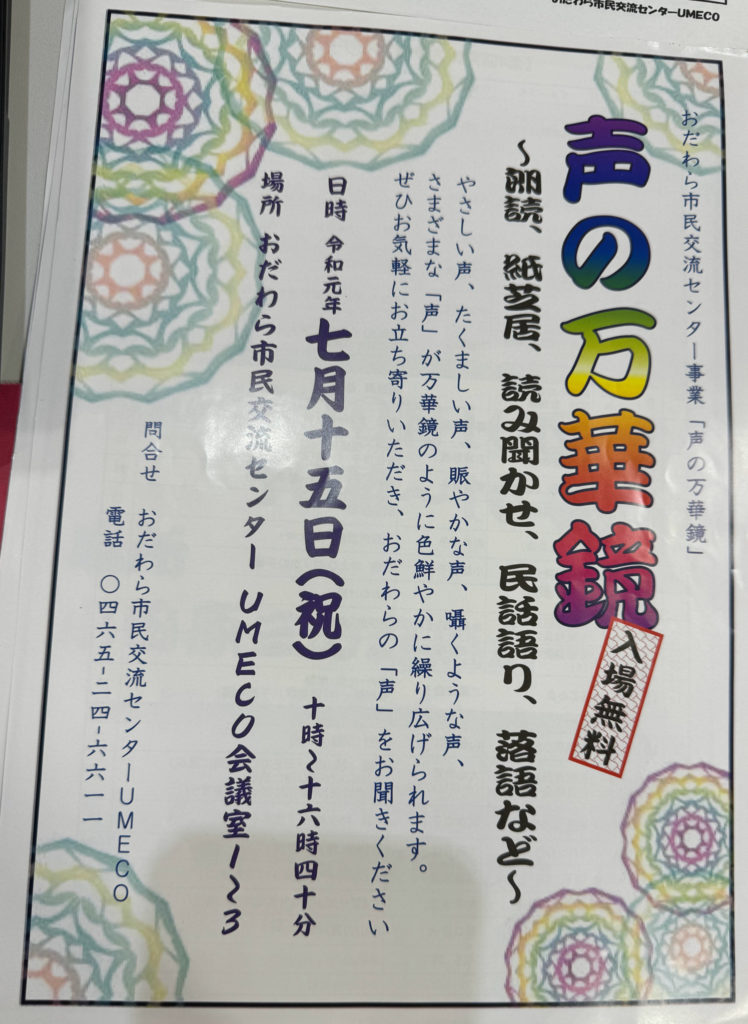 おだわら市民交流センターUMECO
おだわら市民交流センター事業「声の万華鏡」
声の万華鏡
入場無料
～朗読、紙芝居、読み聞かせ、民話語り、落語など～
やさしい声、たくましい声、賑やかな声、囁くような声、
さまざまな「声」が万華鏡のように色鮮やかに繰り広げられます。
ぜひお気軽にお立ち寄りいただき、おだわらの「声」をお聞きください
日時 令和元年 七月十五日(祝) 十時～十六時四十分
場所 おだわら市民交流センター UMECO会議室1～3
問合せ おだわら市民交流センターUMECO
電話 〇四六五-二四-六六一一